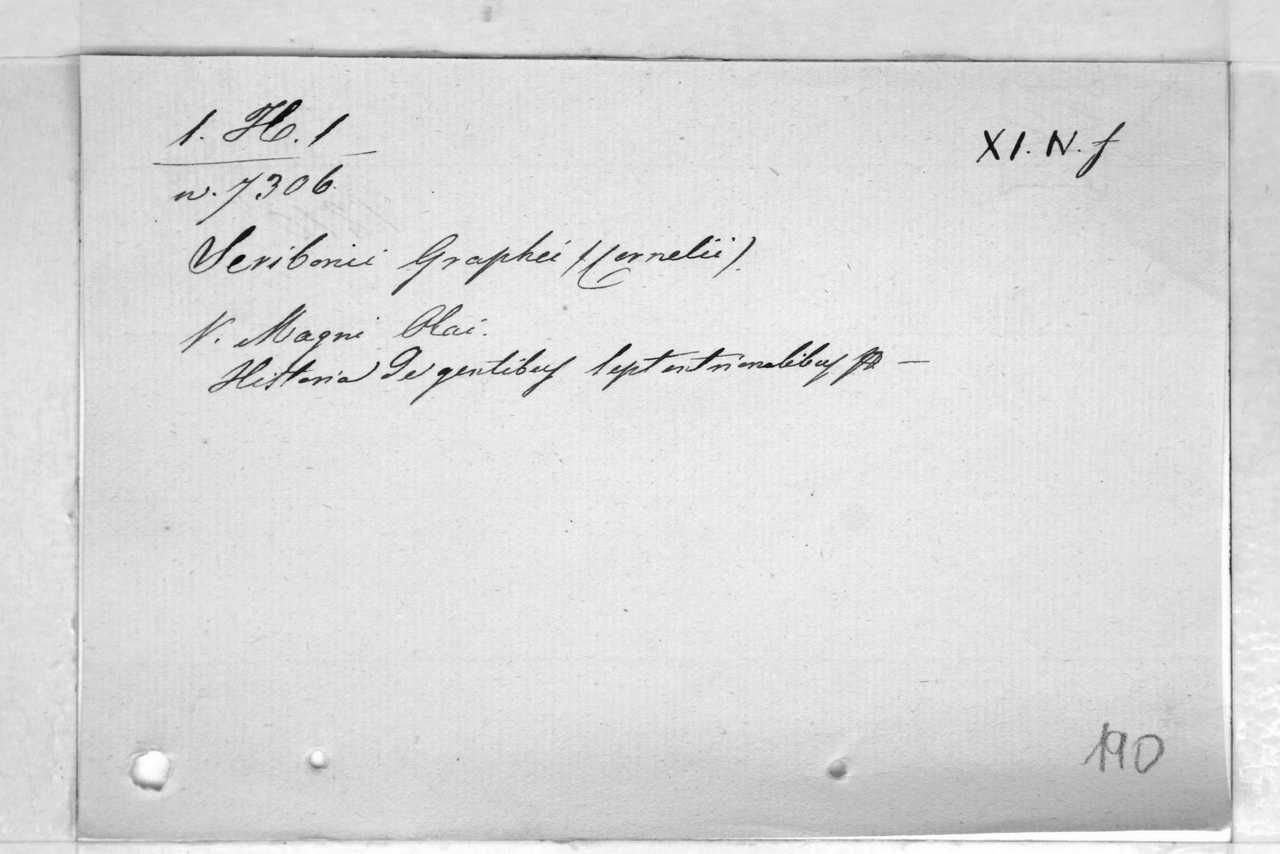 1. H. 1
XI. N. f
n. 7306.
Scribonii Graphei (Cornelii).
V. Magni Olai.
Historia de gentibus septentrionalibus —
190